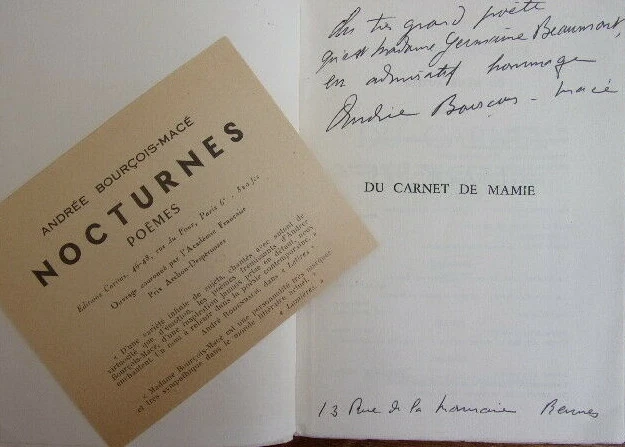 ANDRÉE BOURÇOIS-MACÉ
NOCTURNES
POÈMES
Editions Caractères, 46-48, rue du Four, Paris 6e
Ouvrage couronné par l'Académie Française
Prix Archon-Despérouses
« D'une variété infinie de sujets, chantés avec autant de
virtuosité que d'émotion, les poèmes frémissants d'Andrée
Bourçois-Macé, d'une inspiration jamais prise en défaut, nous
enchantent. Un nom à retenir dans la poésie contemporaine. »
André dans « Lettres ».
« Madame Bourçois-Macé est une personnalité très marquée
et très sympathique dans le monde littéraire actuel. »
« Lumières. »
Au très grand poète
qu'est Madame Germaine Beaumont,
en admiratif hommage
Andrée Bourçois-Macé
DU CARNET DE MAMIE
13 Rue de la Rennes